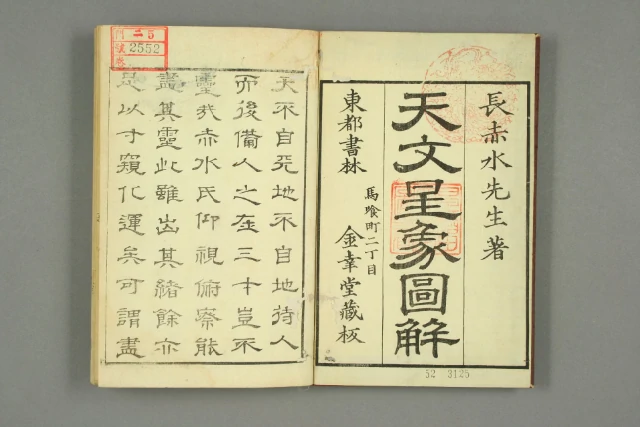 長赤水先生著
天文星象圖解
東都書林
馬喰町二丁目
金幸堂藏板
天不自天地不自地待人
而後備人之在三才豈不
靈哉赤水氏仰視俯察能
盡其靈此雖出其緒餘亦
足以寸窺化運矣可謂盡
二 5
門
號 2552
卷
52 3125